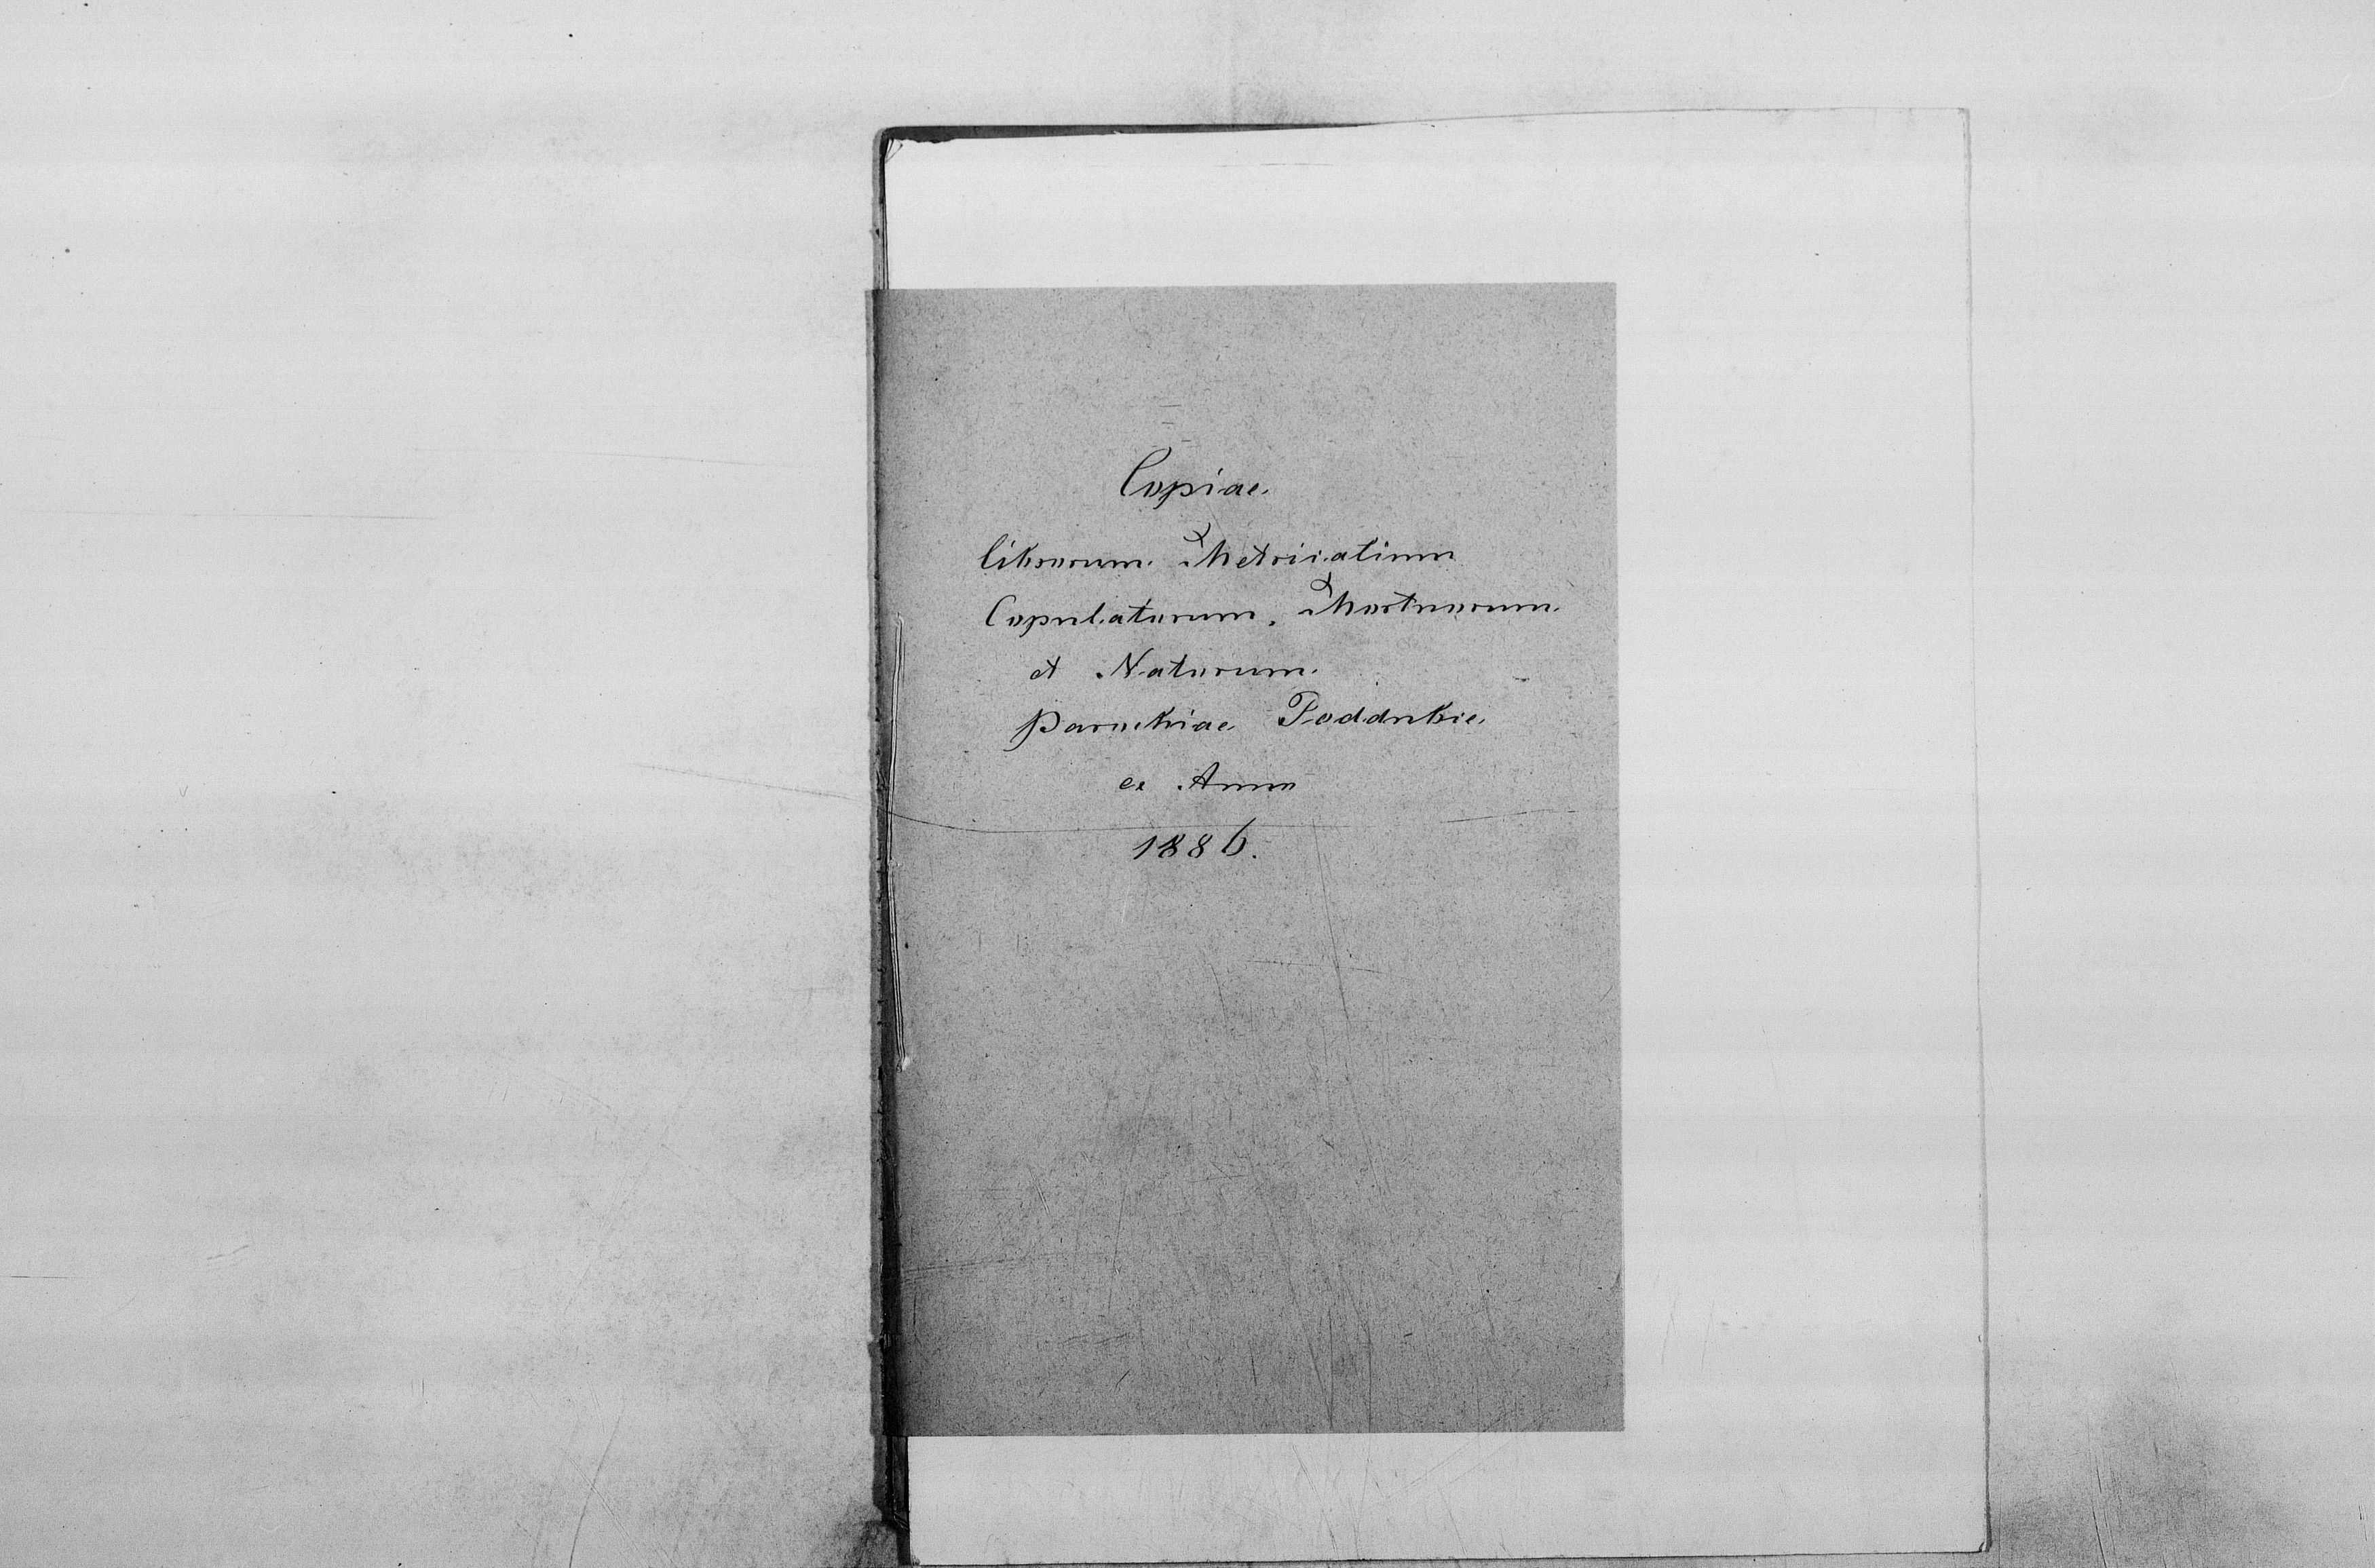 Copiae
librorum Metricalium
Copulatorum, Mortuorum
et Natorum
Parochiae Poddubie
ex Anno
1886.